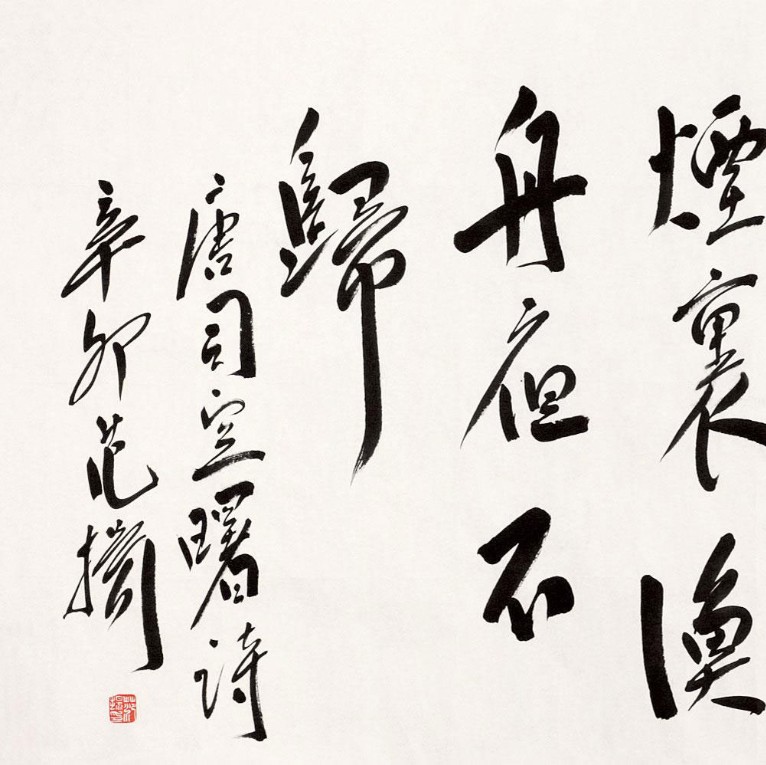 煙裏漁
舟不
歸
唐司空曙詩
辛卯范